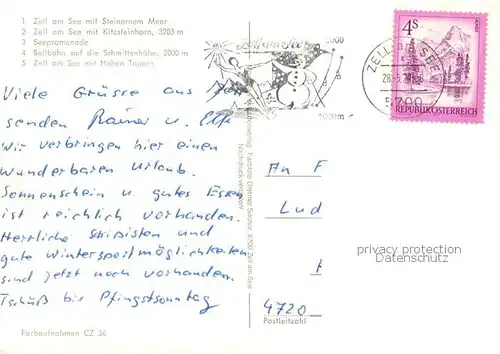 1 Zell am See mit Steinernem Meer
2 Zell am See mit Kitzsteinhorn, 3203 m
3 Seepromenade
4 Seilbahn auf die Schmittenhöhe, 2000 m
5 Zell am See mit Hohen Tauern
Viele Grüsse aus
senden Rainer u. Elke
Wir verbringen hier einen
wunderbaren Urlaub.
Sonnenschein u. gutes Essen
ist reichlich vorhanden.
Herrliche Schipisten und
gute Wintersportmöglichkeiten
sind jetzt noch vorhanden.
Tschüß bis Pfingstsonntag
Farbaufnahmen CZ 36
Zell am See
2000
1000 m
ZELL am SEE
5700
4S
REPUBLIK ÖSTERREICH
Nachdruck verboten!
5700 Zell am See
An F
Lud
4720
Postleitzahl
privacy protection
Datenschutz